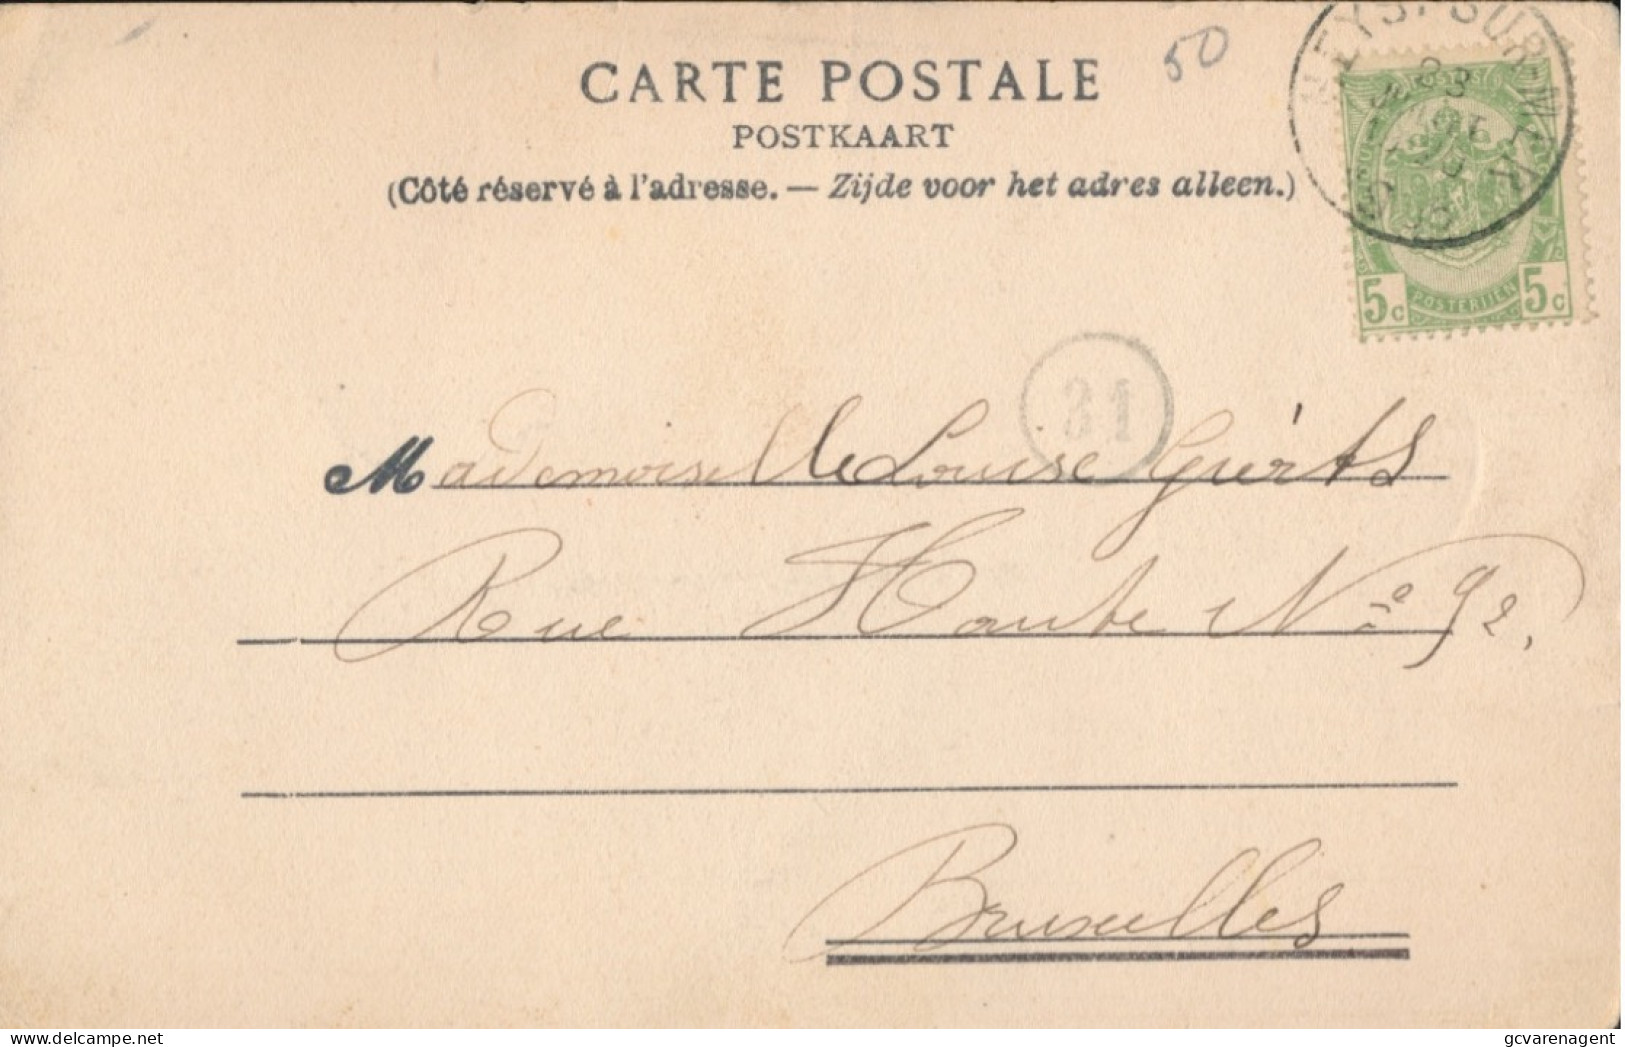 50
CARTE POSTALE
POSTKAART
(Côté réservé à l'adresse. — Zijde voor het adres alleen.)
HEYST-SUR-MER
5c POSTERIJEN 5c
31
Mademoiselle Louise Gierts
Rue Haute Nº 92.
Bruxelles
delcampe.net
gcvarenagent